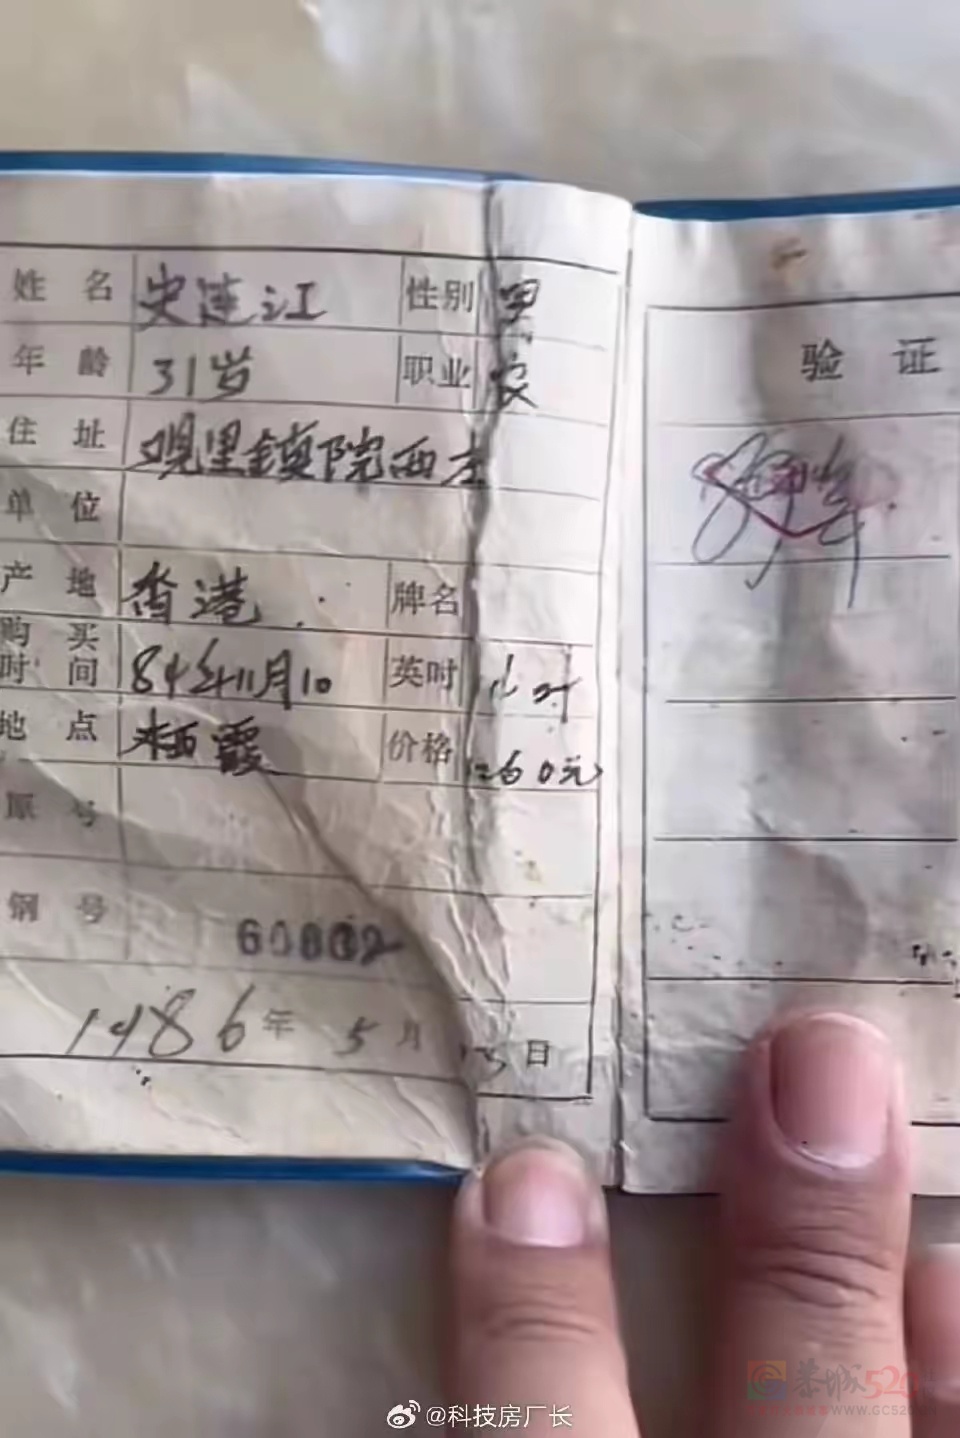 姓名 史连江 性别 男
年龄 31岁 职业 农
住址 观里镇院西庄
单位
产地 香港 牌名
购买时间 84年11月10 英吋
地点 栖霞 价格 1260元
原号
钢号 60832
1986年5月13日
验证
@科技房厂长
恭城520
WWW.GC520